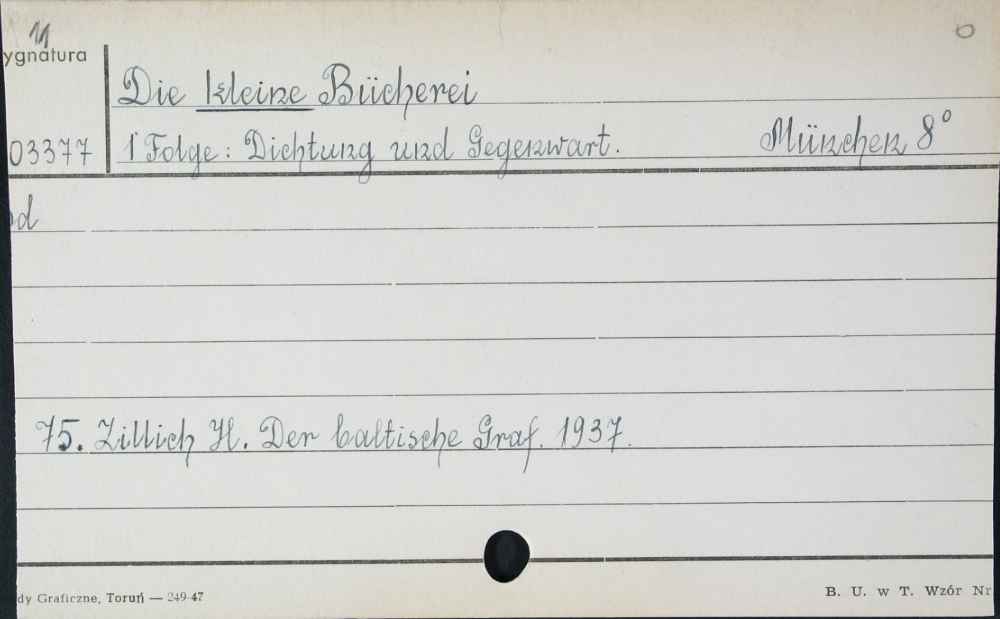 11
ygnatura
Die kleine Bücherei
03377 1 Folge: Dichtung und Gegenwart. München 8°
d
75. Zillich H. Der baltische Graf. 1937.
dy Graficzne, Toruń — 249-47 B. U. w T. Wzór Nr